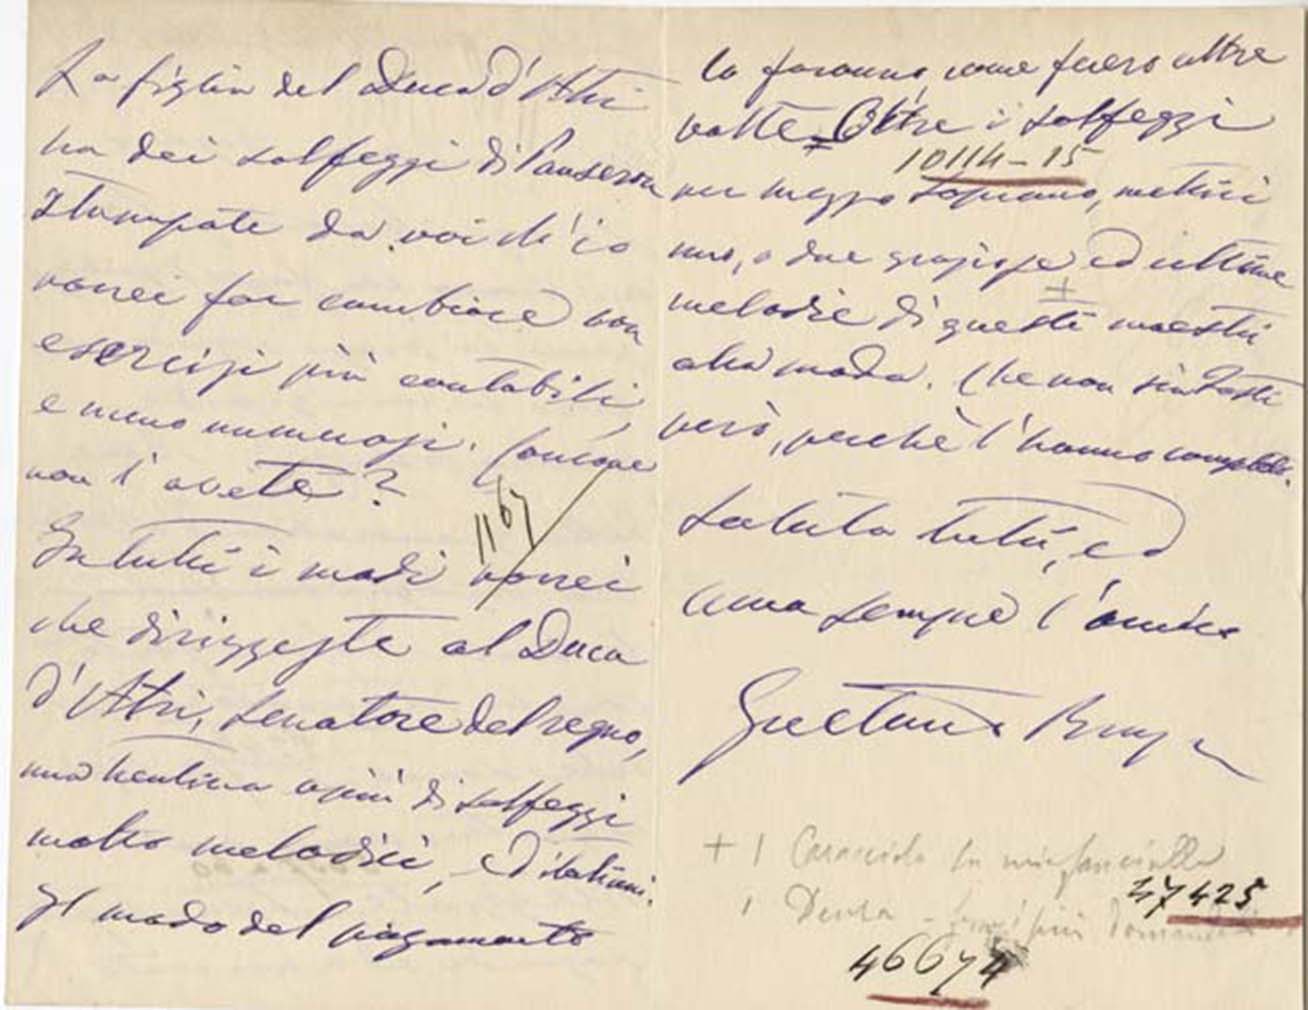 La figlia del Duca d'Atri
ha dei solfeggi di Panseron
stampate da voi ch'io
vorrei far cambiare con
esercizi più cantabili,
e meno numerosi. Concone
non l'avete?
1167
In tutti i modi vorrei
che dirizzeste al Duca
d'Atri, Senatore del regno,
una trentina o più di solfeggi
molto melodici, ed italiani.
Il modo del pagamento
lo faranno come fecero altre
volte = Oltre i solfeggi
10114-15
per mezzo soprano, metteteci
una, o due graziose ed ultime
+
melodie di questi maestri
alla moda. Che non sia Tosti
però, perchè l'hanno completo.
Saluta tutti, ed
ama sempre l'amico
Gaetano Braga
+ 1 Caracciolo La mia fanciulla
47425
1 Denza -
46674